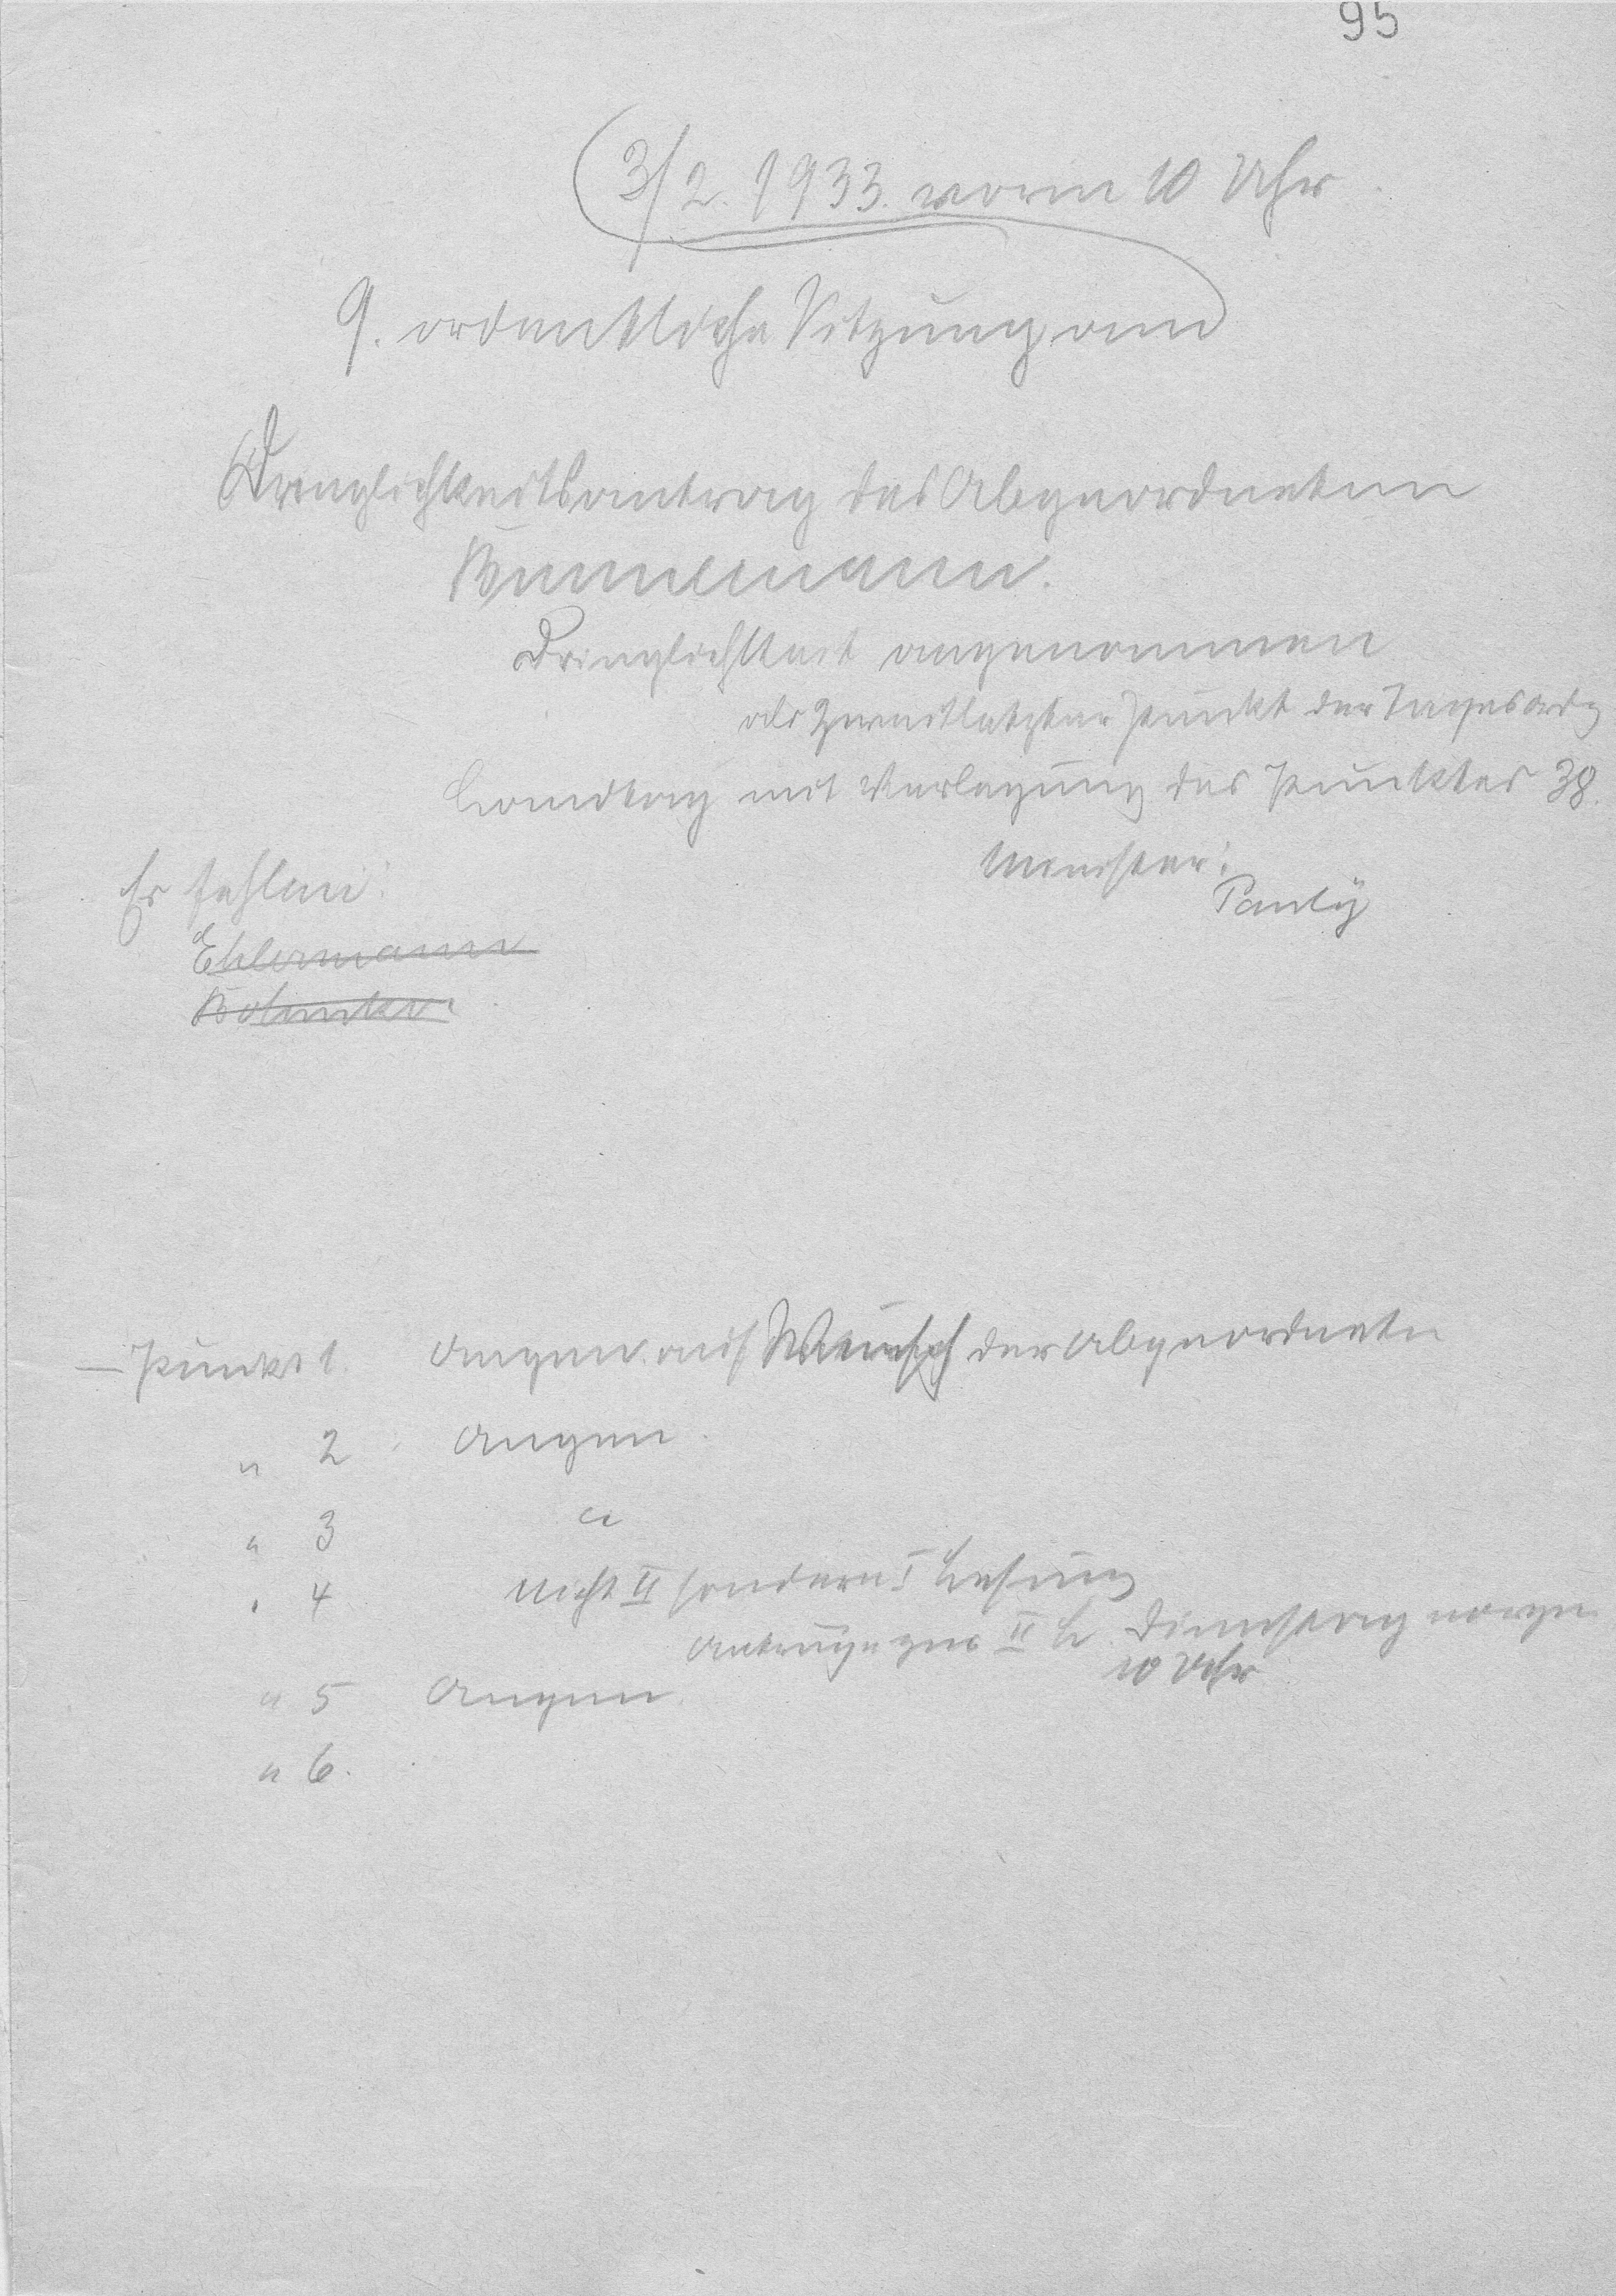 95
3/2. 1933. vorm 10 Uhr
9. ordentliche Sitzung am
Dringlichkeitsantrag des Abgeordneten
Wunnemann.
Dringlichkeit angenommen
als zweitletzter Punkt der Tagesordg
Landtag mit Verlegung des Punktes 38.
Minister:
Pauly
Es fehlen:
Ehlermann
Punkt 1. Angen. auf Wunsch der Abgeordneten
" 2 Angen.
" 3 "
" 4 nicht II sondern I Lesung
Anträge zur II L. Dienstag morgen
10 Uhr
" 5 Angen.
" 6.